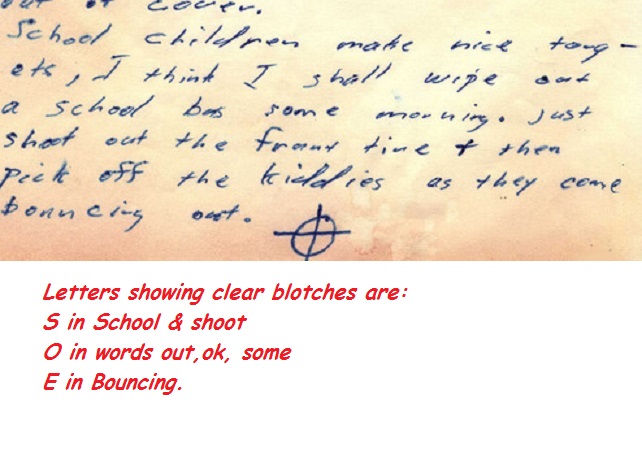 out of cover.
School children make nice targ-
ets, I think I shall wipe out
a school bus some morning. Just
shoot out the front tire + then
pick off the kiddies as they come
bouncing out.
Letters showing clear blotches are:
S in School & shoot
O in words out,ok, some
E in Bouncing.